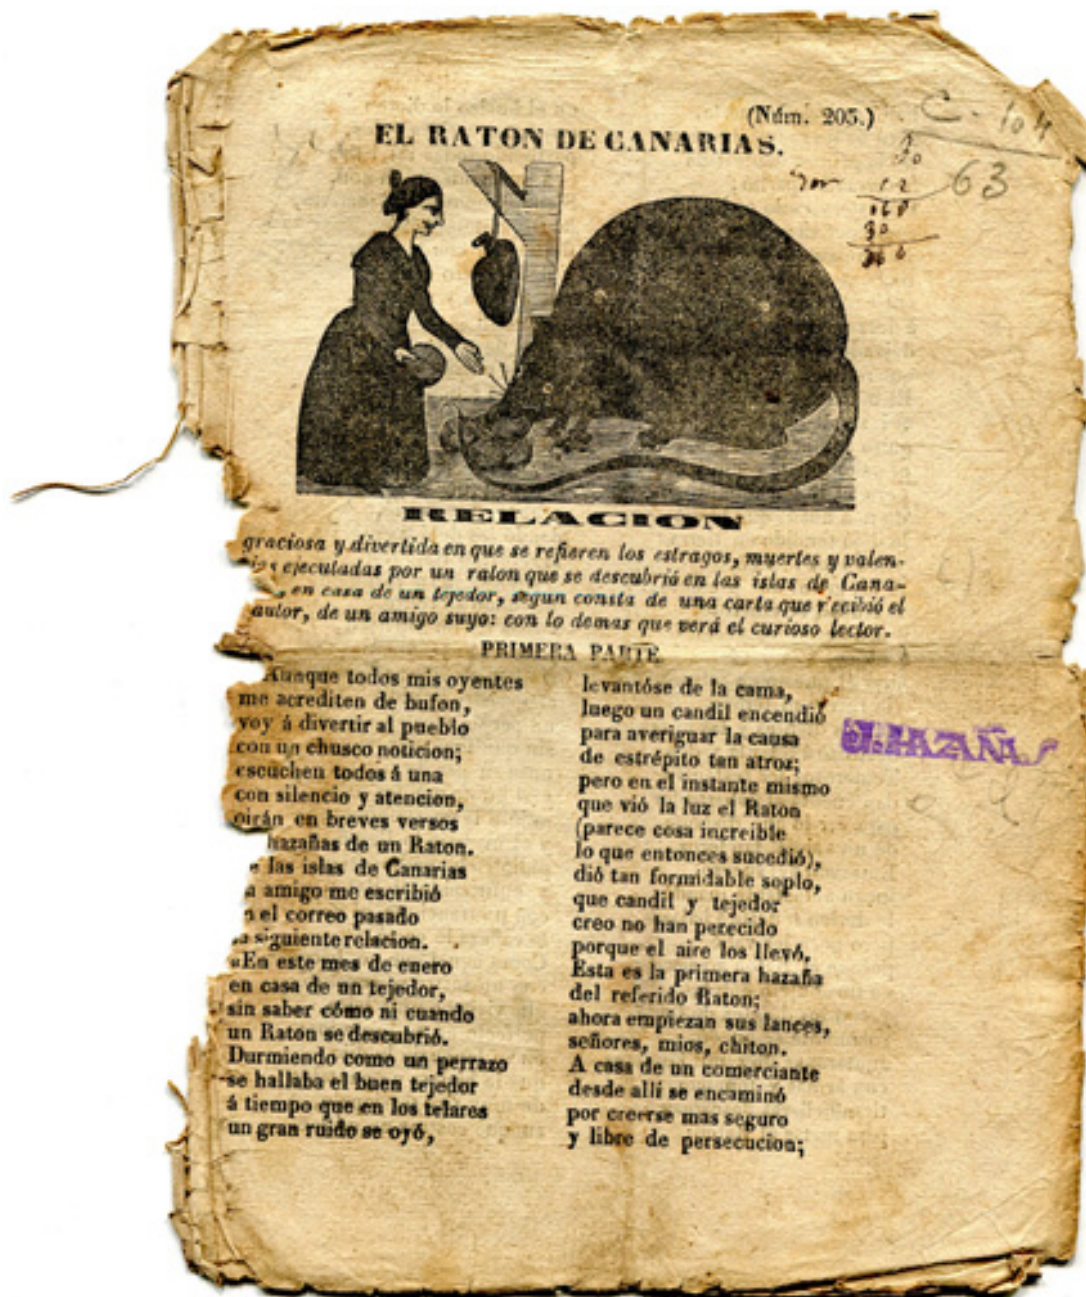 (Núm. 205.)
EL RATON DE CANARIAS.
C - 104
63
RELACION
graciosa y divertida en que se refieren los estragos, muertes y valen-
ejecutadas por un raton que se descubrió en las islas de Cana-
, en casa de un tejedor, segun consta de una carta que recibió el
autor, de un amigo suyo: con lo demas que verá el curioso lector.
PRIMERA PARTE
Aunque todos mis oyentes
me acrediten de bufon,
voy á divertir al pueblo
con un chusco noticion;
escuchen todos á una
con silencio y atencion,
oirán en breves versos
hazañas de un Raton.
e las islas de Canarias
amigo me escribió
n el correo pasado
a siguiente relacion.
«En este mes de enero
en casa de un tejedor,
sin saber cómo ni cuando
un Raton se descubrió.
Durmiendo como un perrazo
se hallaba el buen tejedor
á tiempo que en los telares
un gran ruido se oyó,
levantóse de la cama,
luego un candil encendió
para averiguar la causa
de estrépito tan atroz;
pero en el instante mismo
que vió la luz el Raton
(parece cosa increible
lo que entonces sucedió),
dió tan formidable soplo,
que candil y tejedor
creo no han perecido
porque el aire los llevó.
Esta es la primera hazaña
del referido Raton;
ahora empiezan sus lances,
señores, mios, chiton.
A casa de un comerciante
desde allí se encaminó
por creerse mas seguro
y libre de persecucion;
J. HAZAÑAS